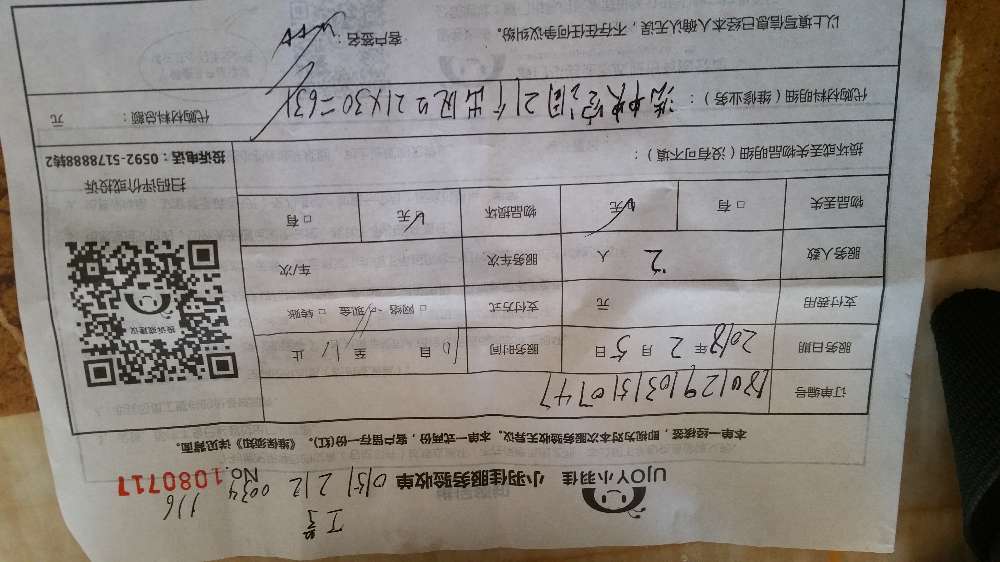 UJOY小羽佳 小羽佳服务验收单 No. 1080717
工号 0151 212 0034 116
本单一经核签,即视为对本次服务验收无异议。本单一式两份,客户留存一份(红)。《维保须知》详见背面。
订单编号
服务日期 2018年 2 月 5 日 服务时间 自 10 至 11 止
支付费用 元 支付方式 □ 网络 现金 □ 转账
服务人数 2 人 服务车次 车/次
物品丢失 □ 有 无 物品损坏 无 □ 有
投诉或建议
扫码评价或投诉
投诉电话:0592-5178888转2
损坏或丢失物品明细(没有可不填):
代购材料明细(维修业务): 洗中央空调21个出风口21×30=631 代购材料总额: 元
以上填写信息已经本人确认无误,不存在任何争议纠纷。 客户签名: